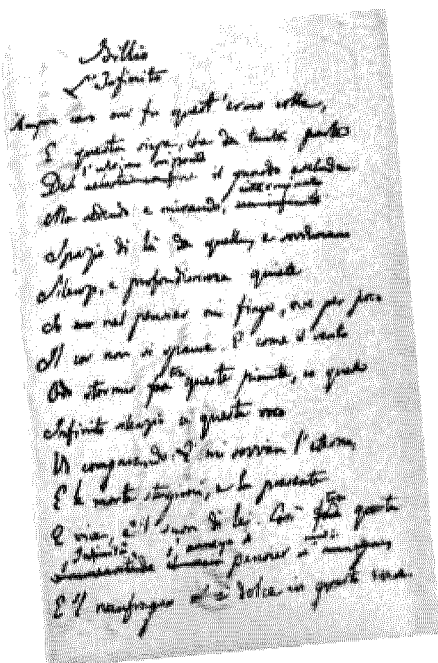 Idillio
L'Infinito
Sempre caro mi fu quest'ermo colle,
E questa siepe, che da tanta parte
l'ultimo orizzonte
Del il guardo esclude.
Ma sedendo e mirando,
Spazio di là da quella, e sovrumani
Silenzi, e profondissima quiete
Io nel pensier mi fingo, ove per poco
Il cor non si spaura. E come il vento
Odo stormir tra queste piante, io quello
Infinito silenzio a questa voce
Vo comparando. E mi sovvien l'eterno,
E le morte stagioni, e la presente
E viva, e 'l suon di lei. Così tra questa
Infinità s'annega il
pensier mio
E 'l naufragar m'è dolce in questo mare.